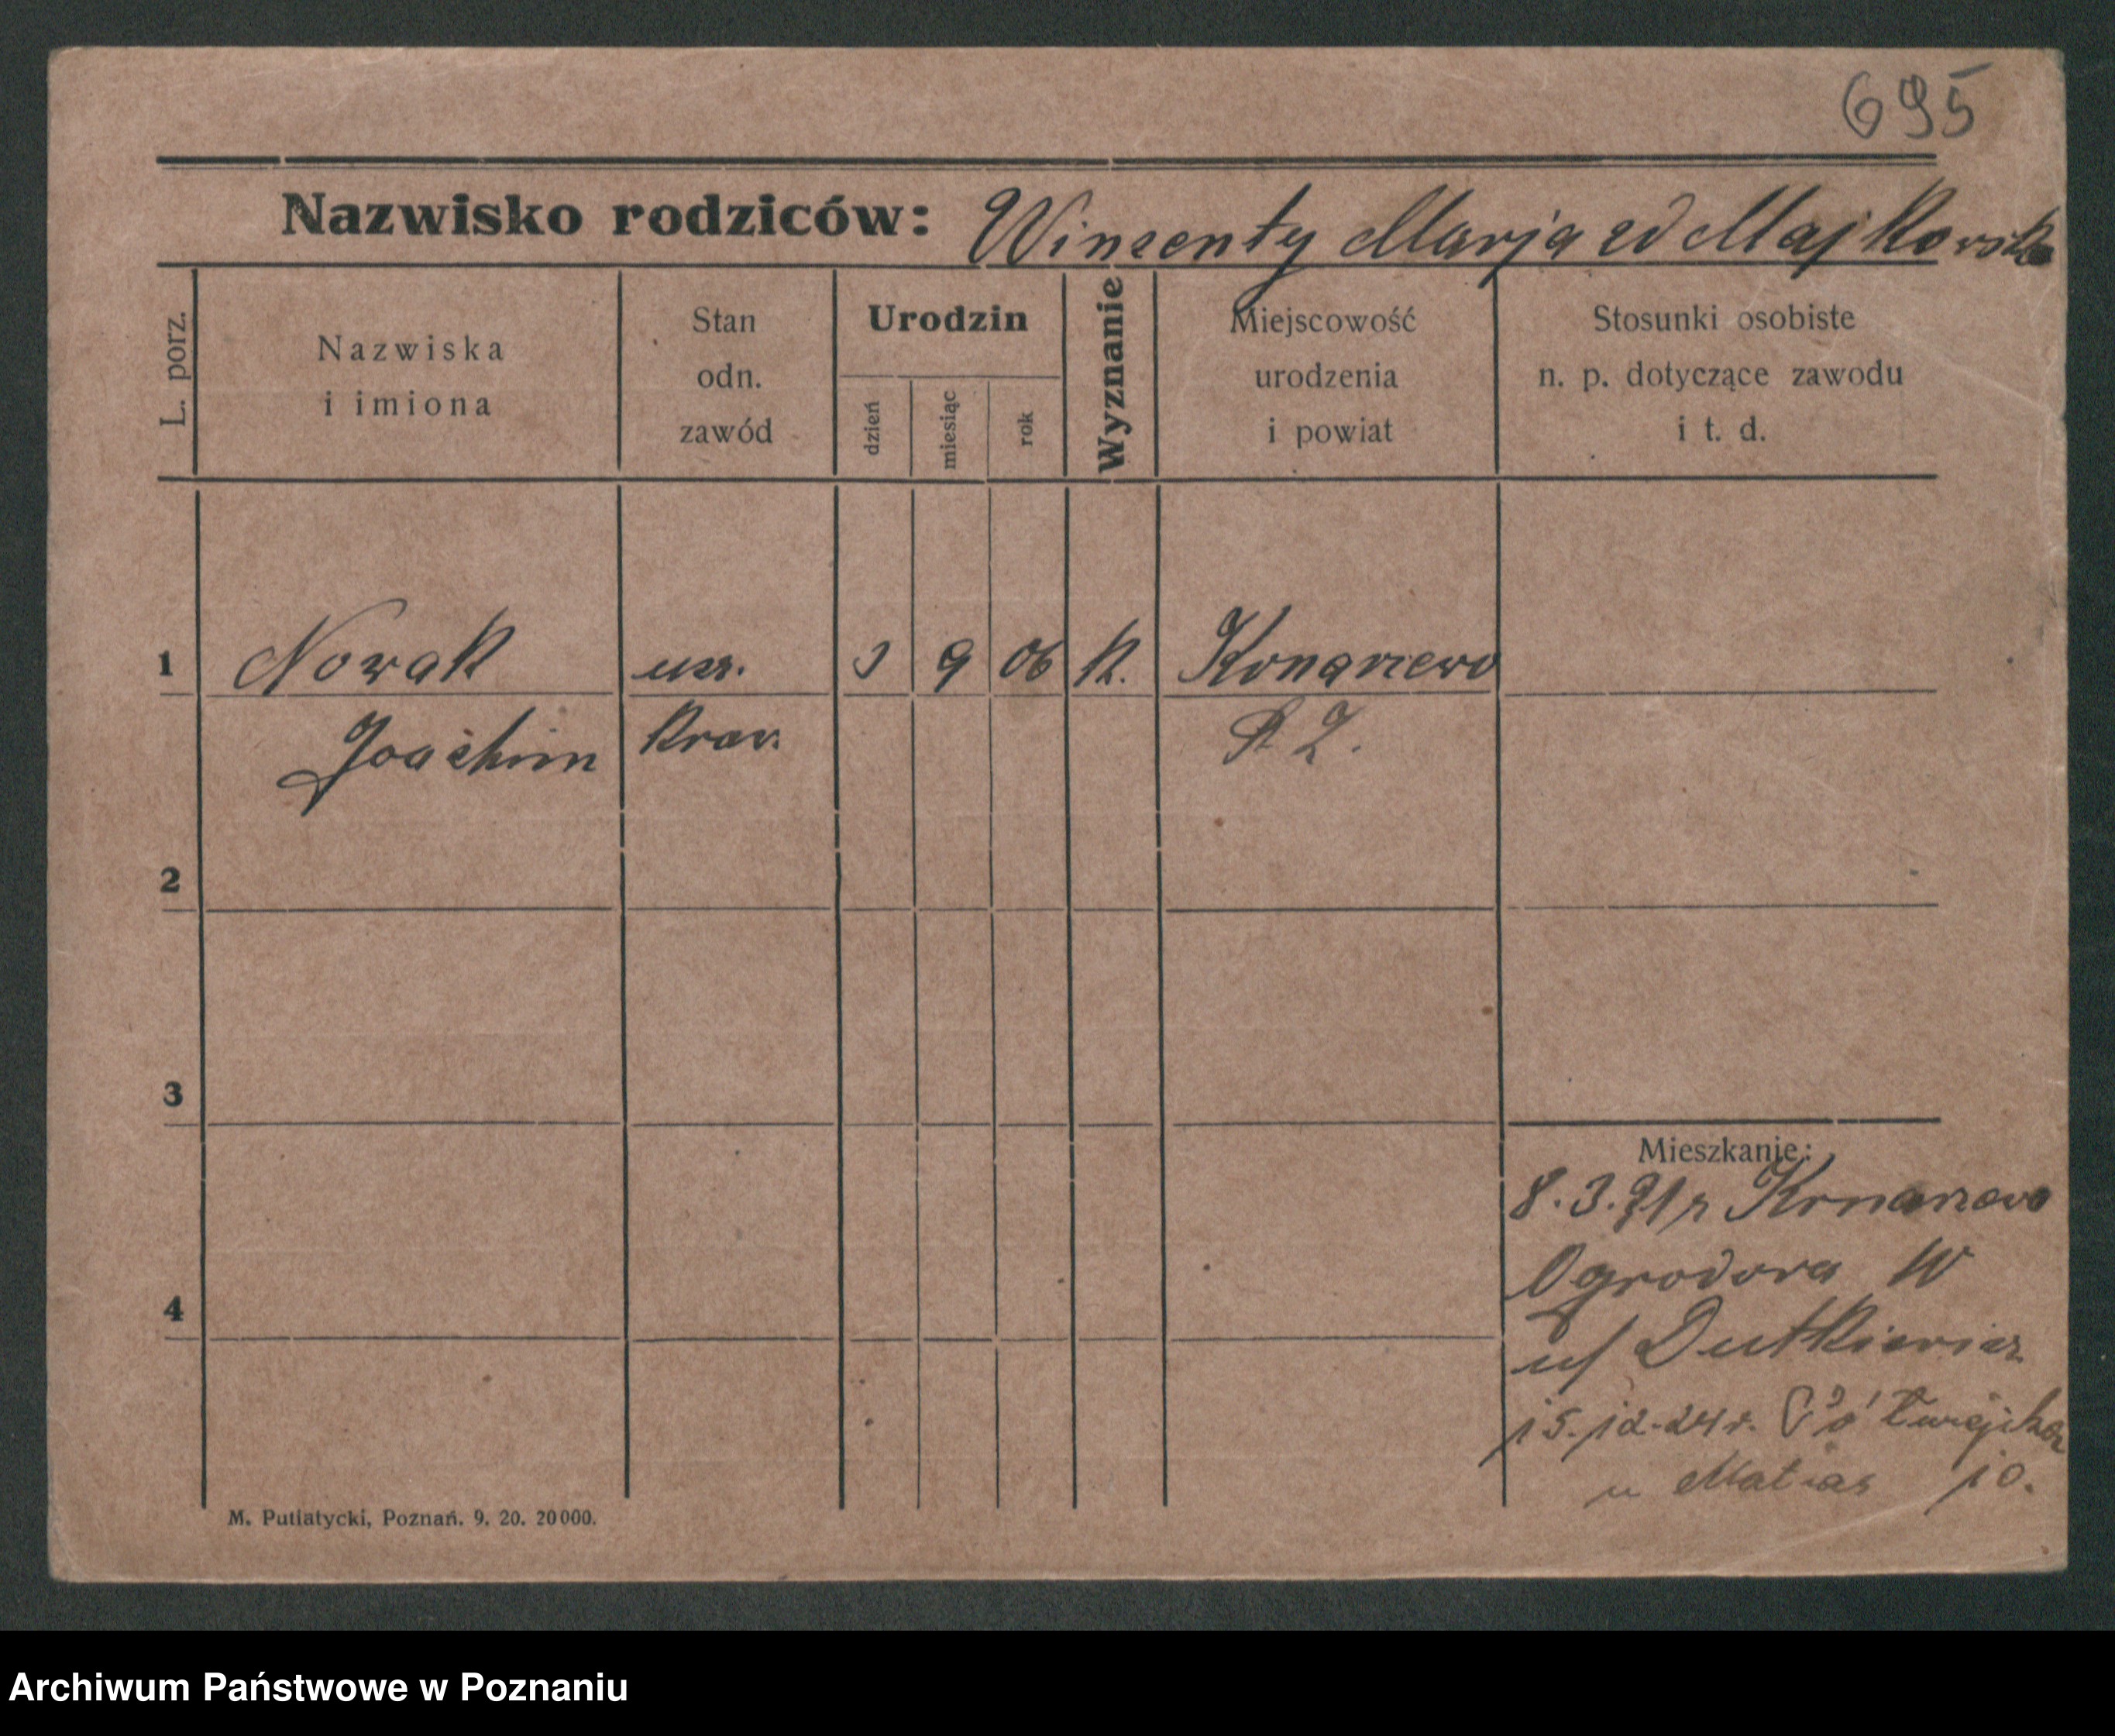 695
Nazwisko rodziców: Winzenty Marja zd Majkowska
L. porz.
Nazwiska
i imiona
Stan
odn.
zawód
Urodzin
dzień
miesiąc
rok
Wyznanie
Miejscowość
urodzenia
i powiat
Stosunki osobiste
n. p. dotyczące zawodu
i t. d.
1 Nowak ucz. 9 06 k. Konarzewo
Joachim kraw.
2
3
Mieszkanie:
8.3.21 r Konarzewo
Ogrodowa
4
u/ Dutkiewicz
15.12.24 r. Półwiejska
u Matias 10.
M. Putiatycki, Poznań. 9. 20. 20000.
Archiwum Państwowe w Poznaniu